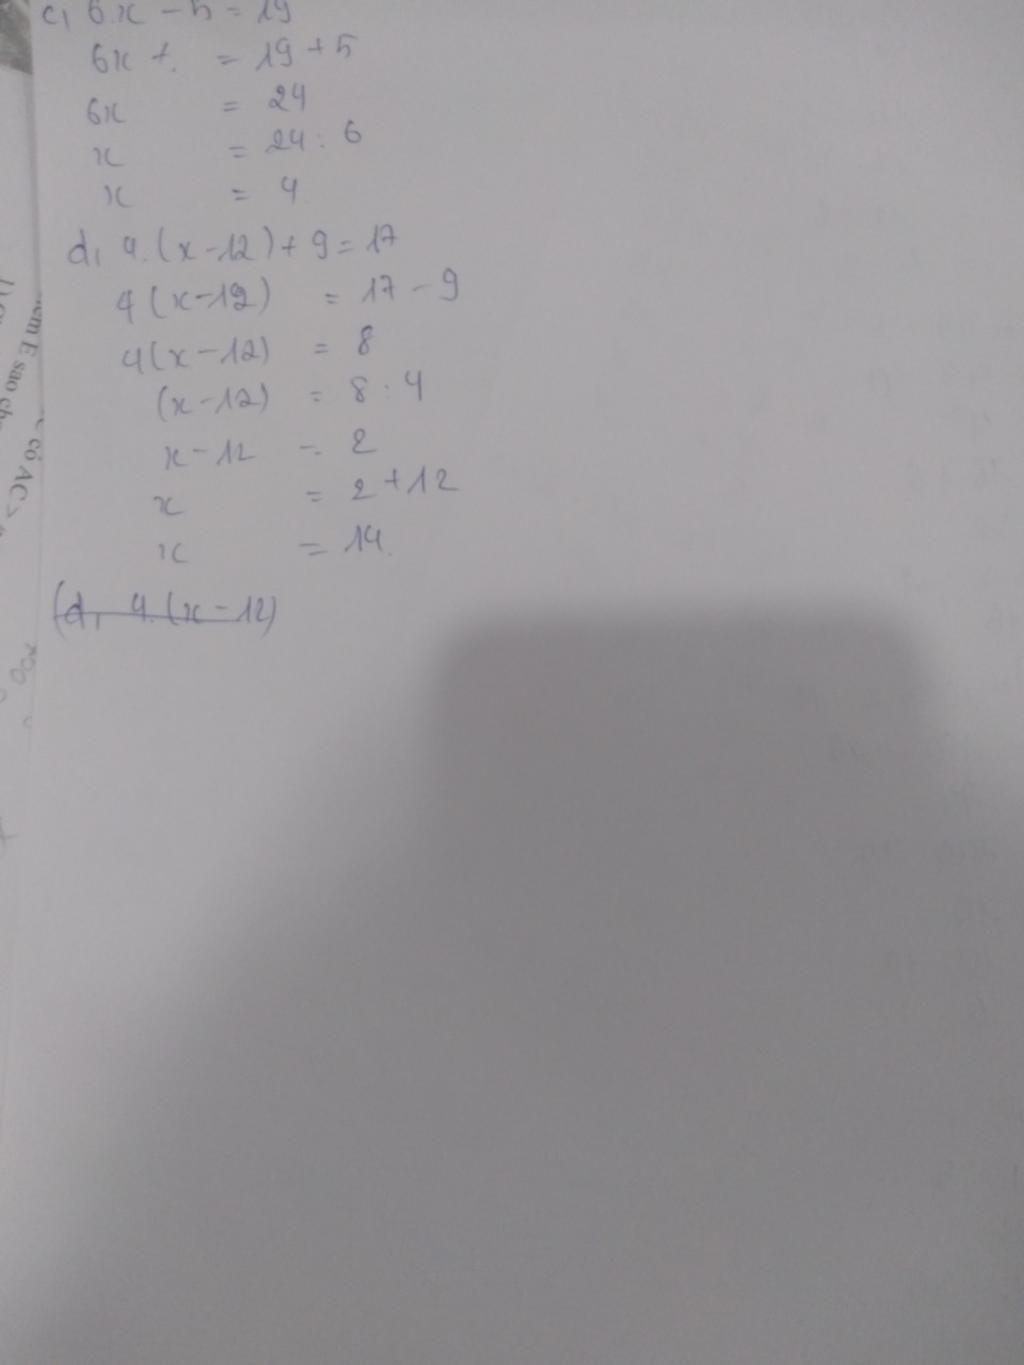 c, 6x - 5 = 19
6x + = 19 + 5
6x = 24
x = 24 : 6
x = 4
d, 4.(x-12) + 9 = 17
4(x-12) = 17 - 9
4(x-12) = 8
(x-12) = 8 : 4
x-12 = 2
x = 2 + 12
x = 14.
(d, 4.(x-12)
E sao
có AC >